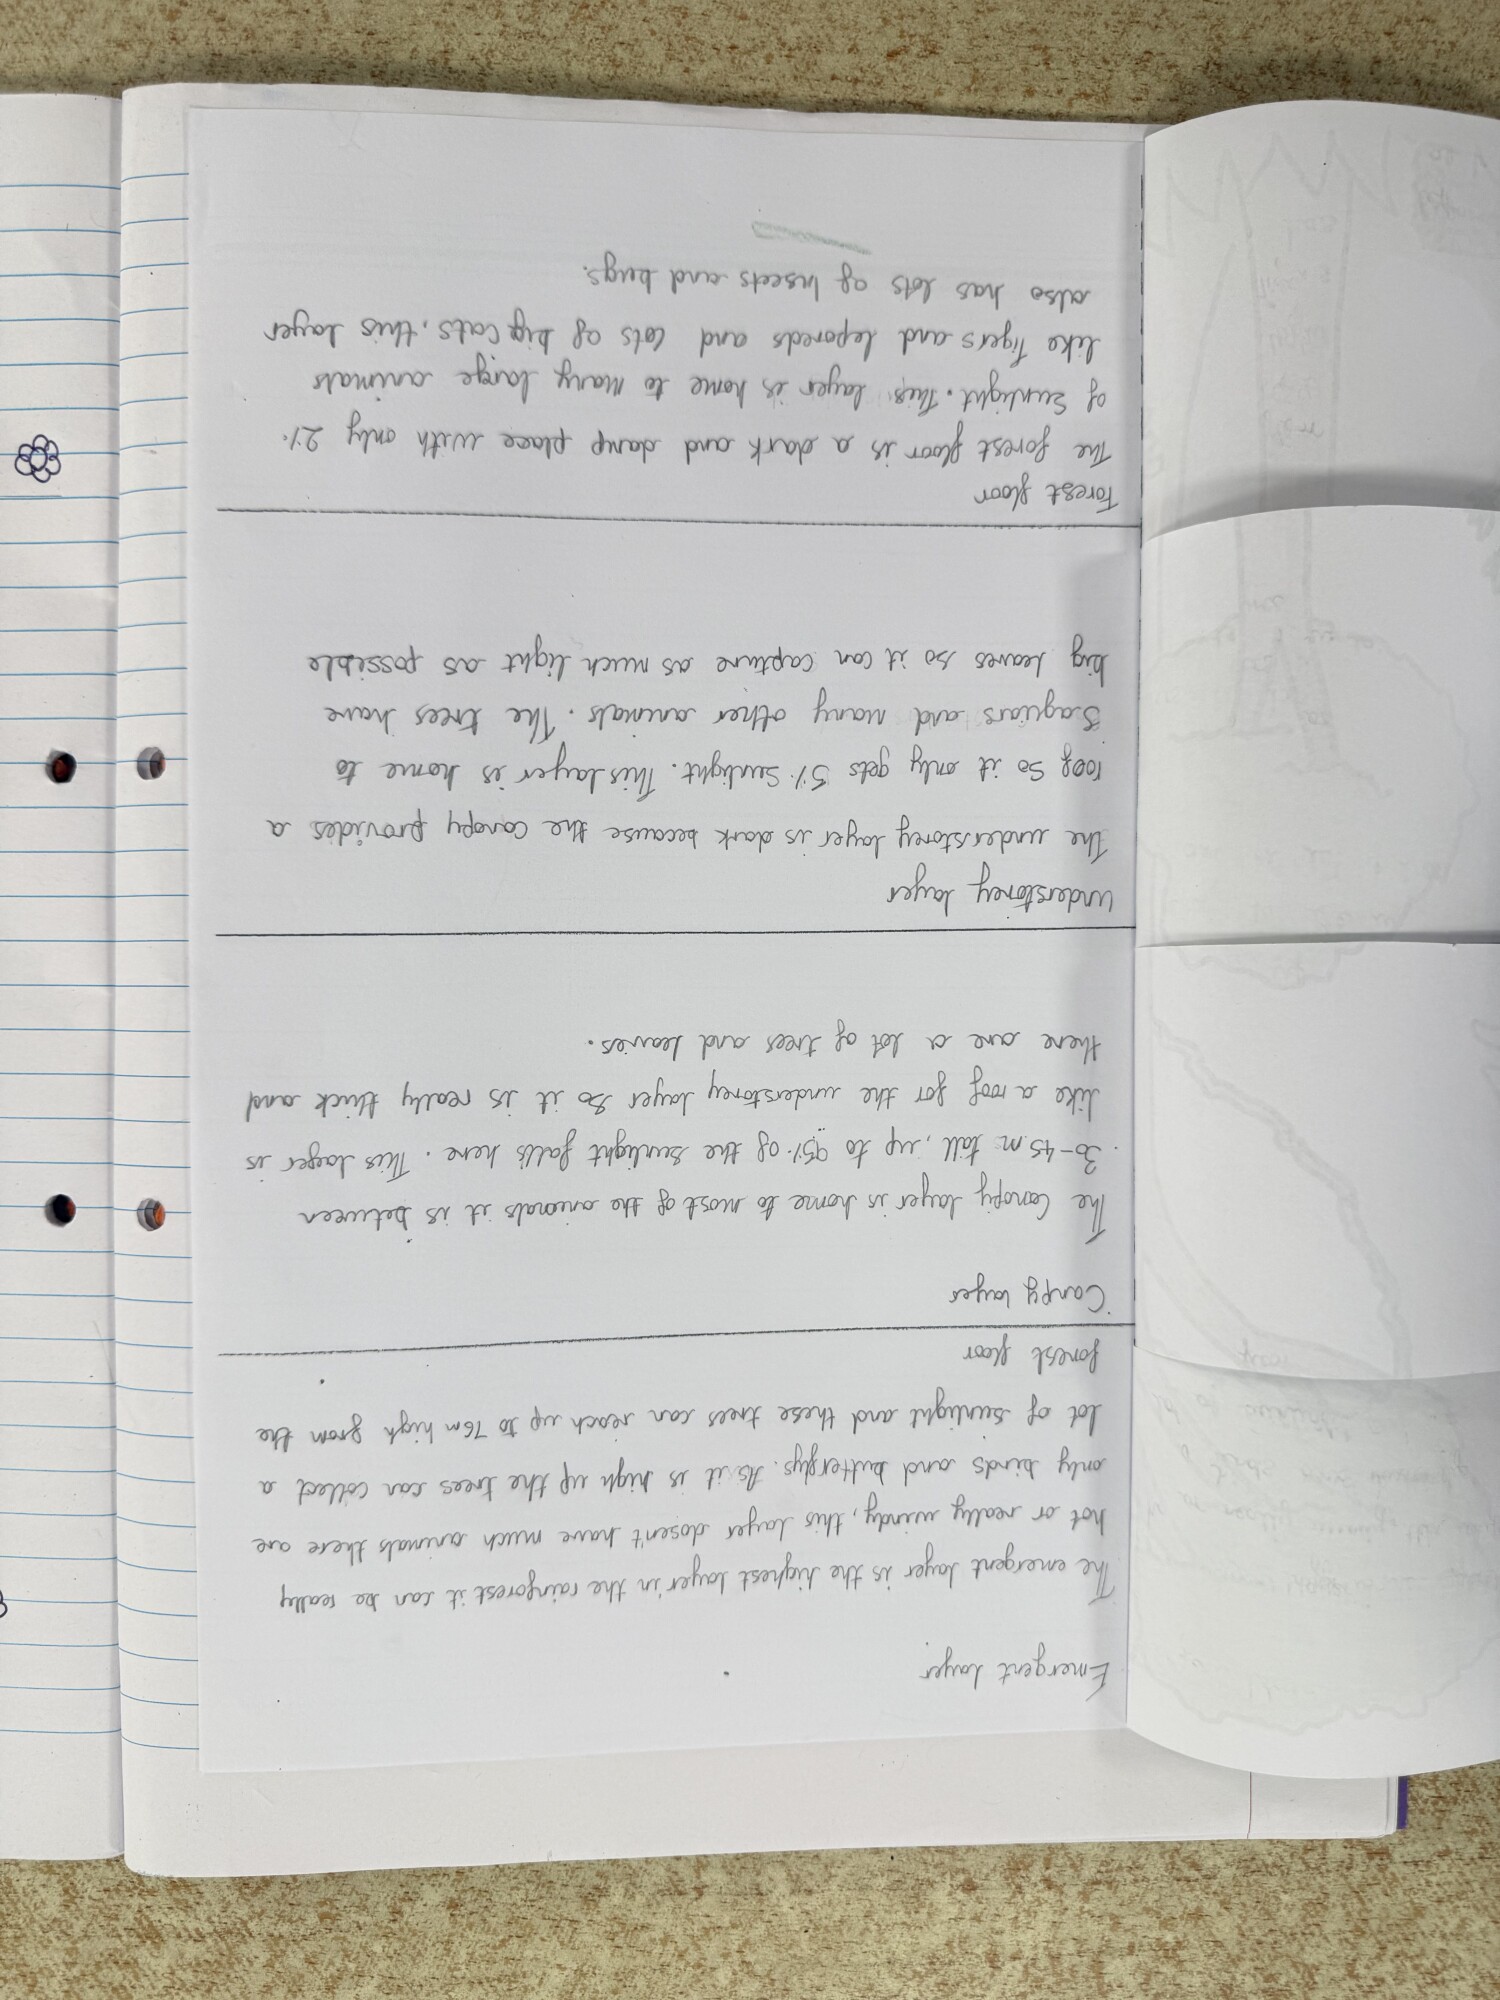 Emergent layer
The emergent layer is the highest layer in the rainforest it can be really
hot or really windy, this layer dosen't have much animals there are
only birds and butterflys. As it is high up the trees can collect a
lot of sunlight and these trees can reach up to 76m high from the
forest floor
Canpy layer
The Canopy layer is home to most of the animals it is between
30-45 m tall, up to 95% of the sunlight falls here. This layer is
like a roof for the understorey layer so it is really thick and
there are a lot of trees and leaves.
Understorey layer
The understorey layer is dark because the canopy provides a
roof so it only gets 5% sunlight. This layer is home to
Jaguars and many other animals. The trees have
big leaves so it can capture as much light as possible
Forest floor
The forest floor is a dark and damp place with only 2%
of sunlight. This layer is home to many large animals
like Tigers and leporeds and lots of big cats, this layer
also has lots of insects and bugs.